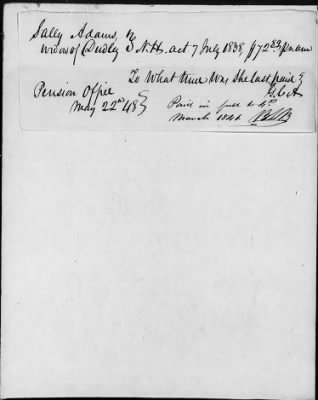 Sally Adams,
widow of Dudley N.H. act 7 July 1838, $72 pr annum
To What time was she last paid?
G.C.A
Pension Office
May 22d 48
Paid in full to 4th
March 1841